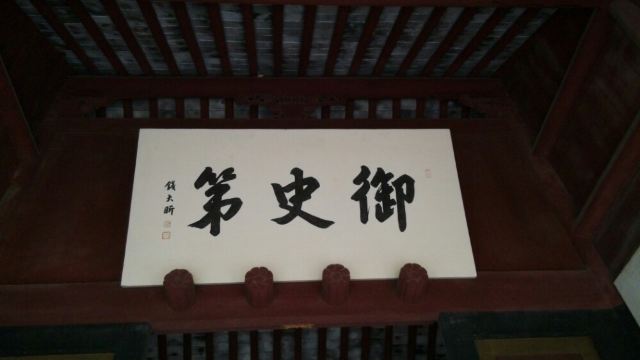 御史第
錢大昕